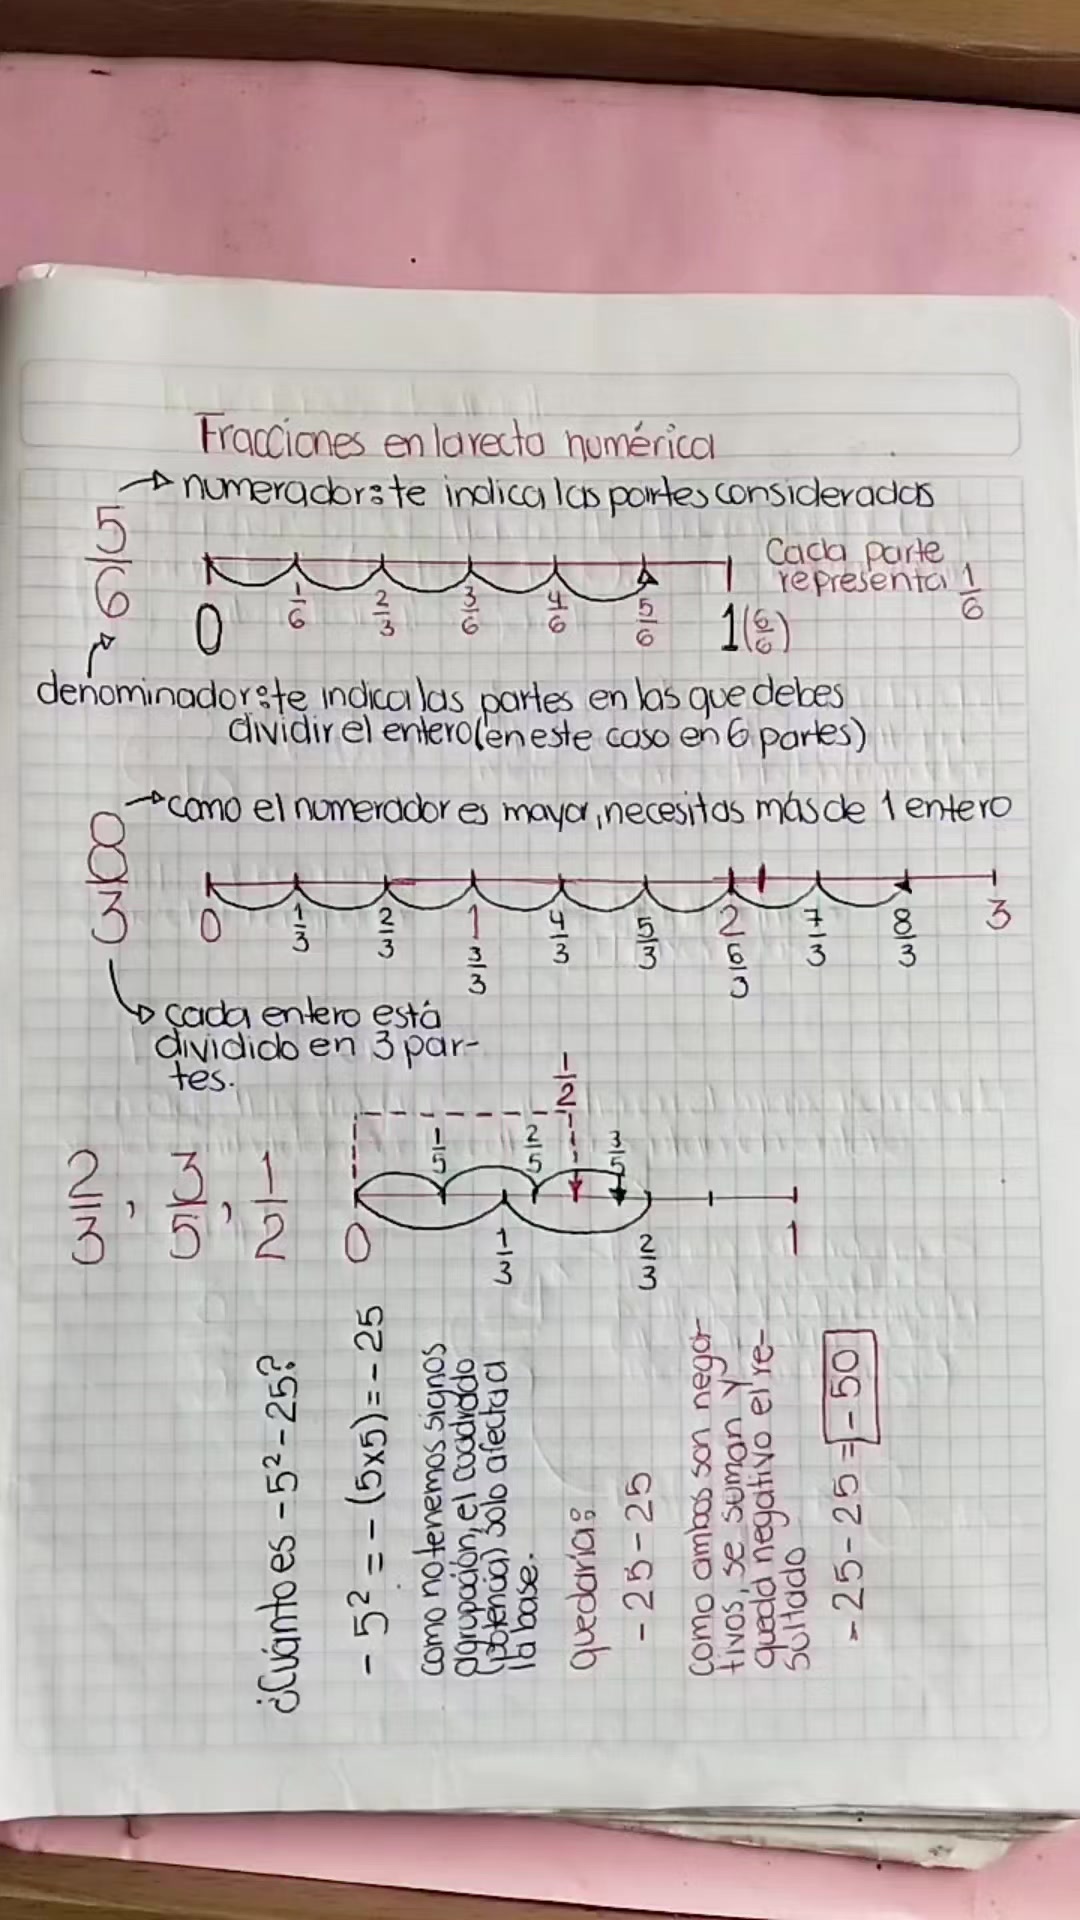 Fracciones en la recta numérica
numerador: te indica las partes consideradas
5/6
Cada parte
representa 1/6
0 1/6 2/3 3/6 4/6 5/6 1(6/6)
denominador: te indica las partes en las que debes
dividir el entero (en este caso en 6 partes)
como el numerador es mayor, necesitas más de 1 entero
8/3
0 1/3 2/3 1 4/3 5/3 2 7/3 8/3 3
3/3 6/3
cada entero está
dividido en 3 par-
tes.
1/2
1/5 2/5 3/5
2/3, 3/5, 1/2
0 1/3 2/3 1
¿Cuánto es -5² - 25?
-5² = -(5x5) = -25
como no tenemos signos
agrupación, el cuadrado
(potencia) solo afecta a
la base.
quedaría:
-25-25
Como ambos son nega-
tivos, se suman y
queda negativo el re-
sultado
-25-25 = -50